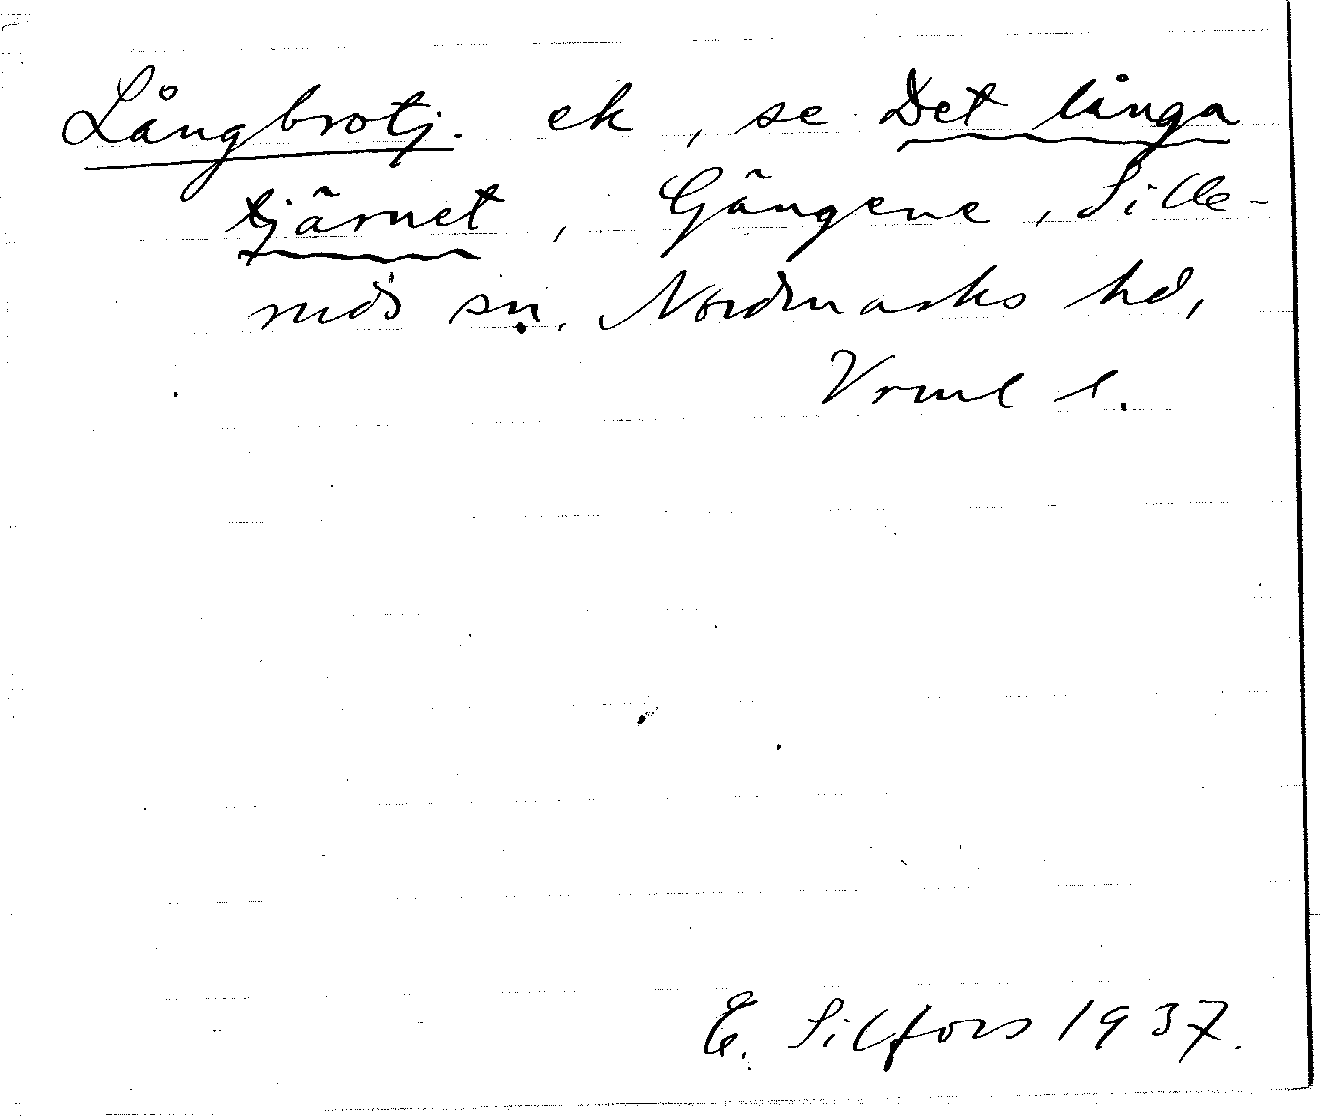 Långbrotj. ek, se Det långa
tjärnet, Gängene, Sille-
ruds sn. Nordmarks hd,
Vrml l.
E. Silfors 1937.